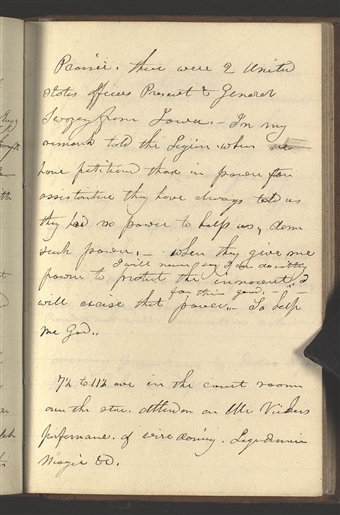 Prairie. there were 2 United
States officers Present & General
Swazey from Iowa. - In my
remarks told the Legion - when we
have petitioned those in power for
assistance they have always told us
they had no power to help us, damn
such power. - when they give me
I will never say I can do nothing
power to protect the innocent.
for their good. -
will excise that power - So help
me God..
7½ to 11½ eve in the court room
over the store. attend on Mr Vickers
performance. of wire dancing. Legerdemain
Magic &c.